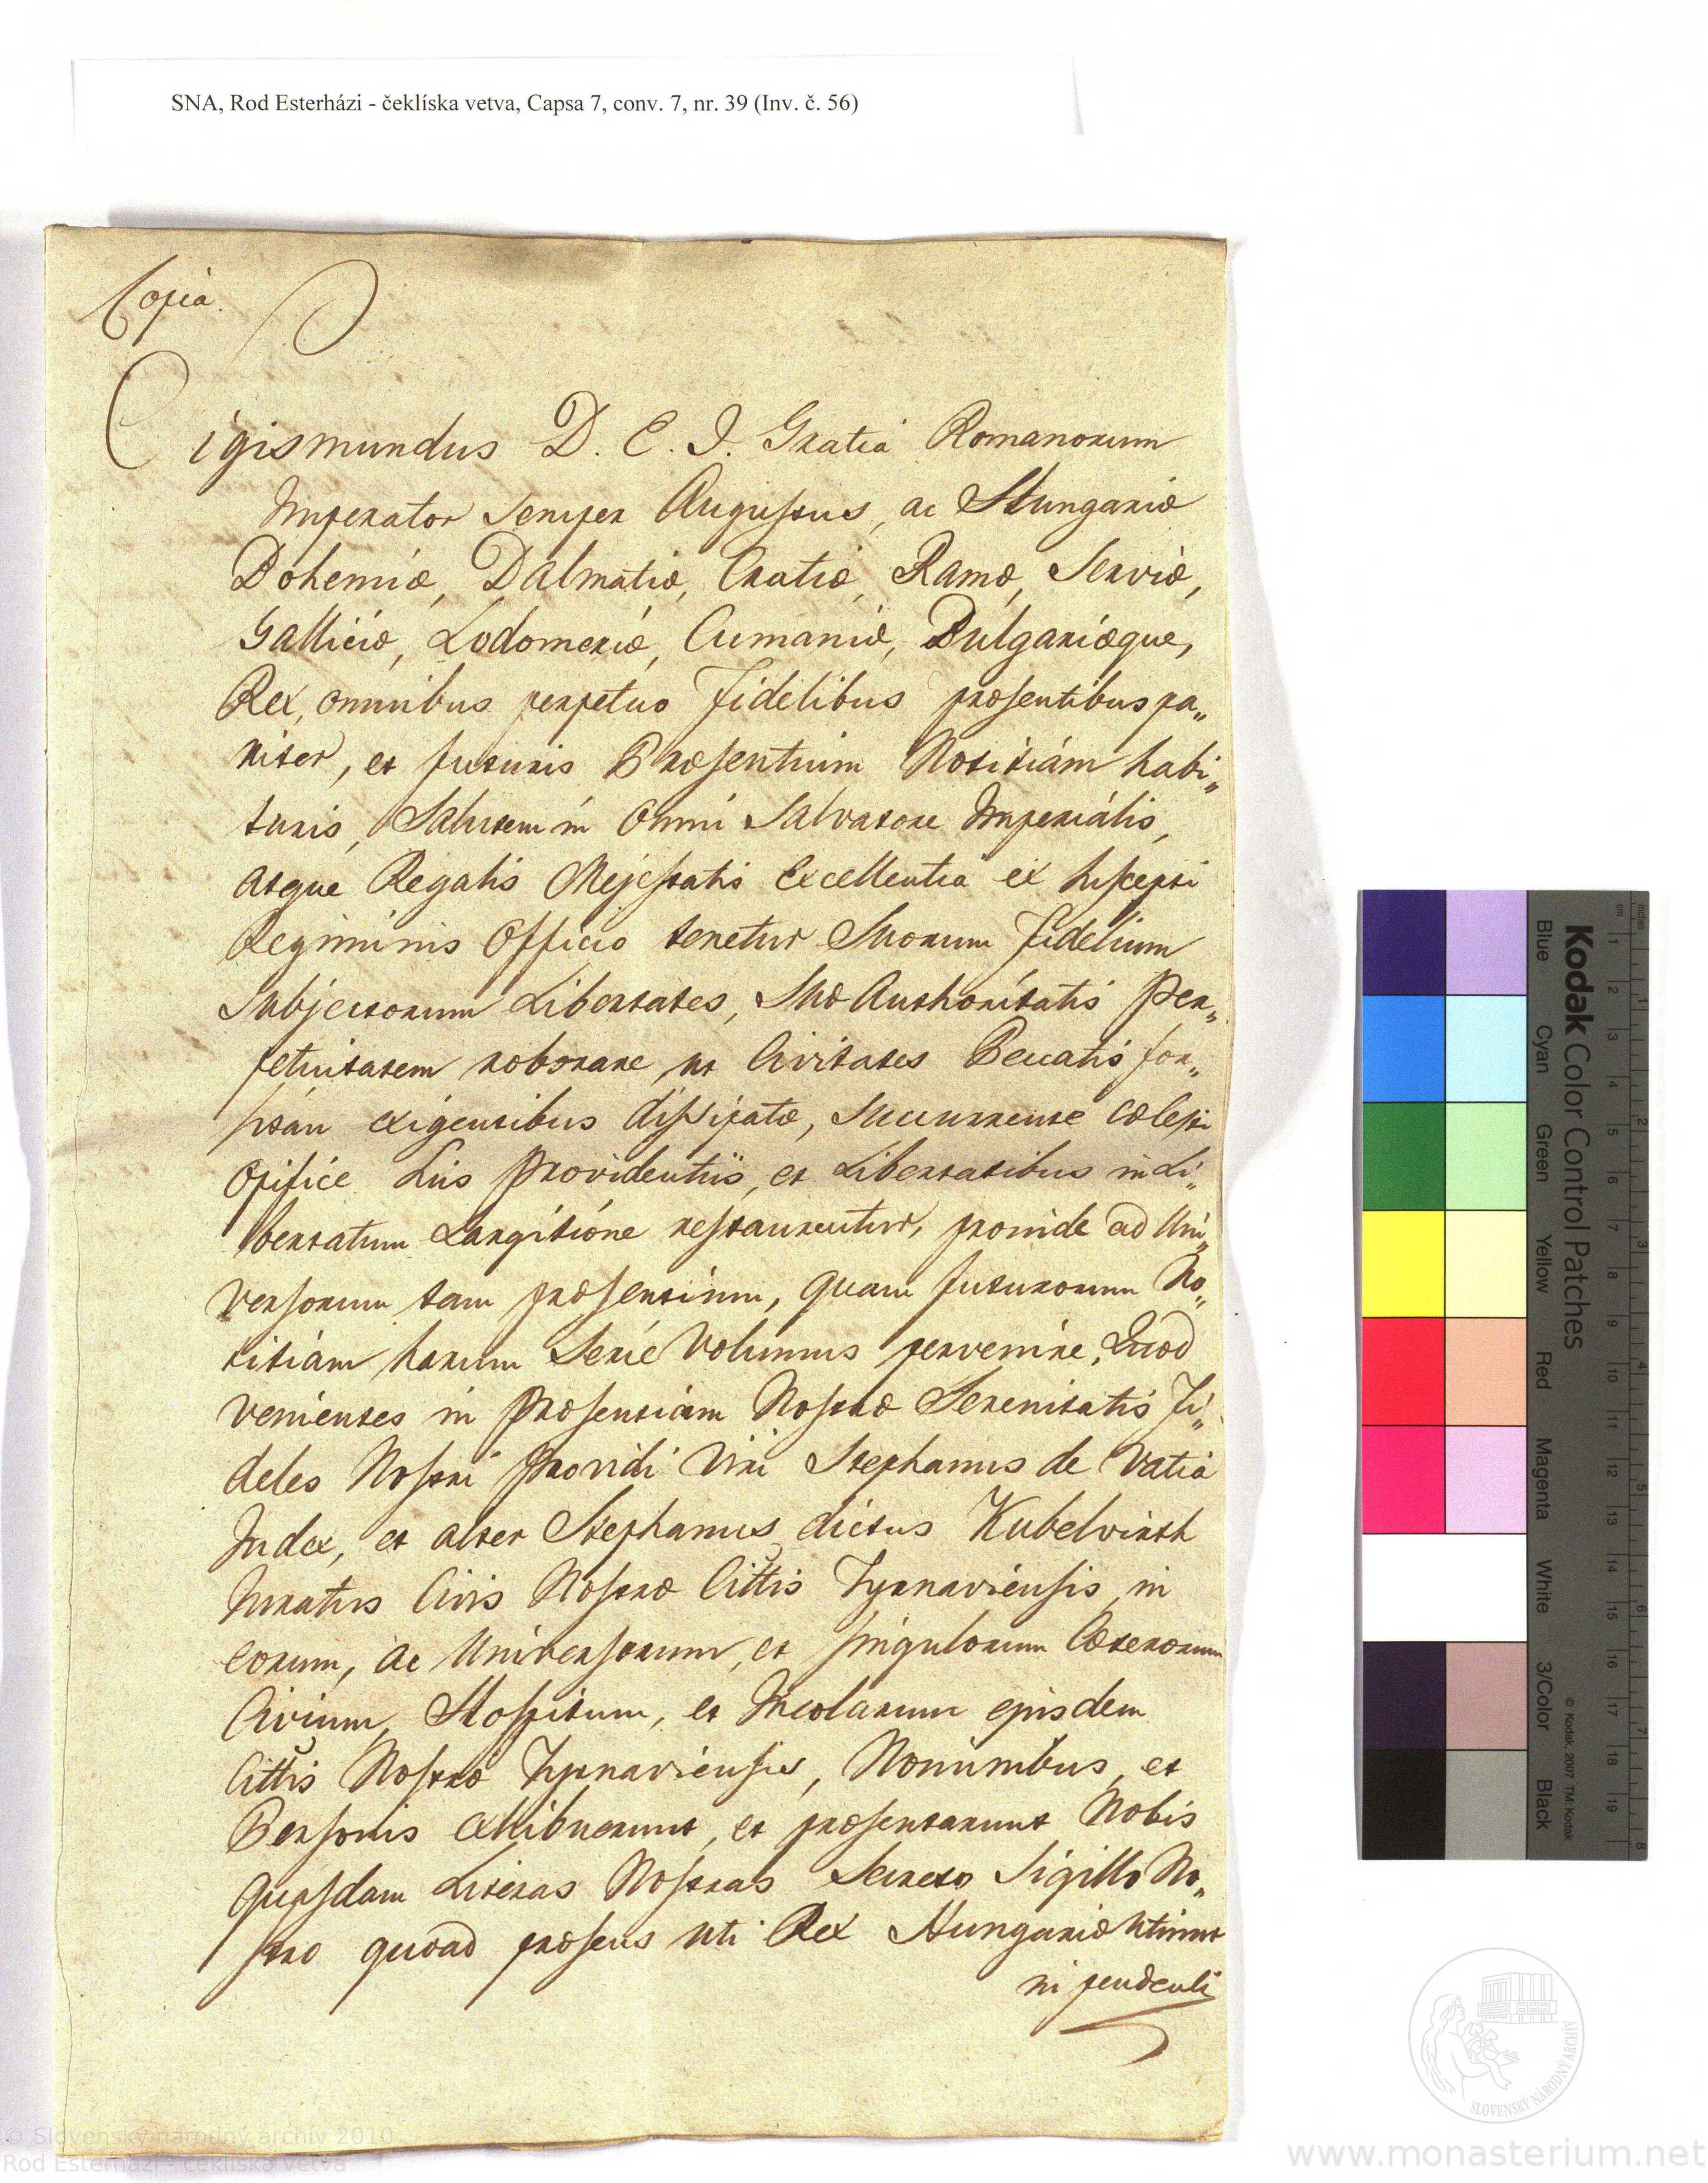 SNA, Rod Esterházi - čeklíska vetva, Capsa 7, conv. 7, nr. 39 (Inv. č. 56)
Copia.
Sigismundus D. E. I. Gratia Romanorum
Imperator Semper Augustus, ac Hungariæ
Bohemiæ, Dalmatiæ, Croatiæ, Ramæ, Serviæ,
Galliciæ, Lodomeriæ, Cumaniæ, Bulgariæque,
Rex, omnibus perpetuo Fidelibus præsentibus pa„
riter, et futuris Præsentium Notitiam habi„
turis, Salutem in Omni Salvatore Imperialis,
atque Regalis Mejestatis Excellentia ex suscepti
Regiminis Officio tenetur Suorum Fidelium
Subjectorum Libertates, Suæ Authoritatis Per„
petuitatem roborare, ut Civitates Peccatis for„
san exigentibus dissipatæ, Succurrente cælesti
Opifice suis Providentiis, et Libertatibus in Li„
bertatum Largitione restaurentur, proinde ad Uni„
versorum tam præsentium, quam futurorum No„
titiam harum Serie Volumus pervenire, Quod
venientes in Præsentiam Nostræ Serenitatis Fi„
deles Nostri Providi Viri Stephanus de Vatia
Judex, et alter Stephanus dictus Kubelvirth
Juratus Civis Nostræ Cittis Tyrnaviensis, in
eorum, ac Universorum, et singulorum Cæterorum
Civium, Hospitum, et Incolarum ejusdem
Cittis Nostræ Tyrnaviensis, Nominibus, et
Personis exhibuerunt, et præsentarunt Nobis
quasdam Literas Nostras Secreto Sigillo No„
stro quoad præsens uti Rex Hungariæ utimur
in pendenti
Kodak Color Control Patches
Blue Cyan Green Yellow Red Magenta White 3/Color Black
© Kodak, 2007 TM: Kodak
inches 1 2 3 4 5 6 7 8
cm 1 2 3 4 5 6 7 8 9 10 11 12 13 14 15 16 17 18 19
SLOVENSKÝ NÁRODNÝ ARCHÍV
© Slovenský národný archív 2010
Rod Esterházi - čeklíska vetva
www.monasterium.net